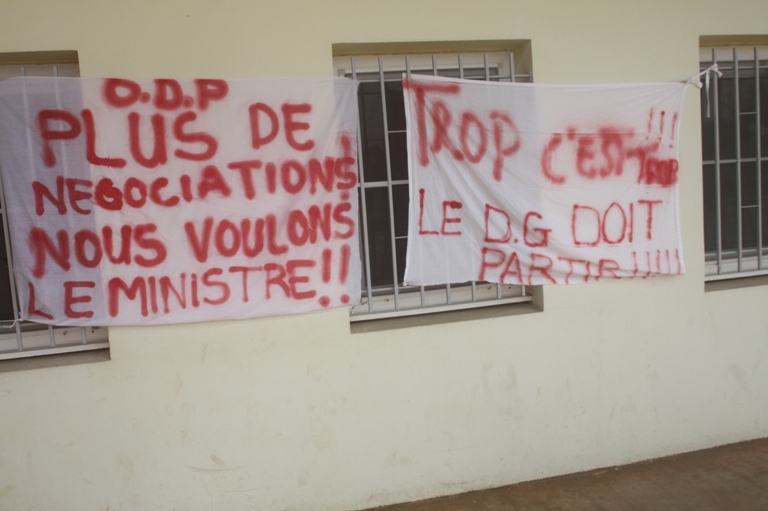 O.D.P
PLUS DE
NEGOCIATIONS!
NOUS VOULONS
LE MINISTRE!!
TROP C'EST TROP!!!
LE D.G DOIT
PARTIR!!!!!